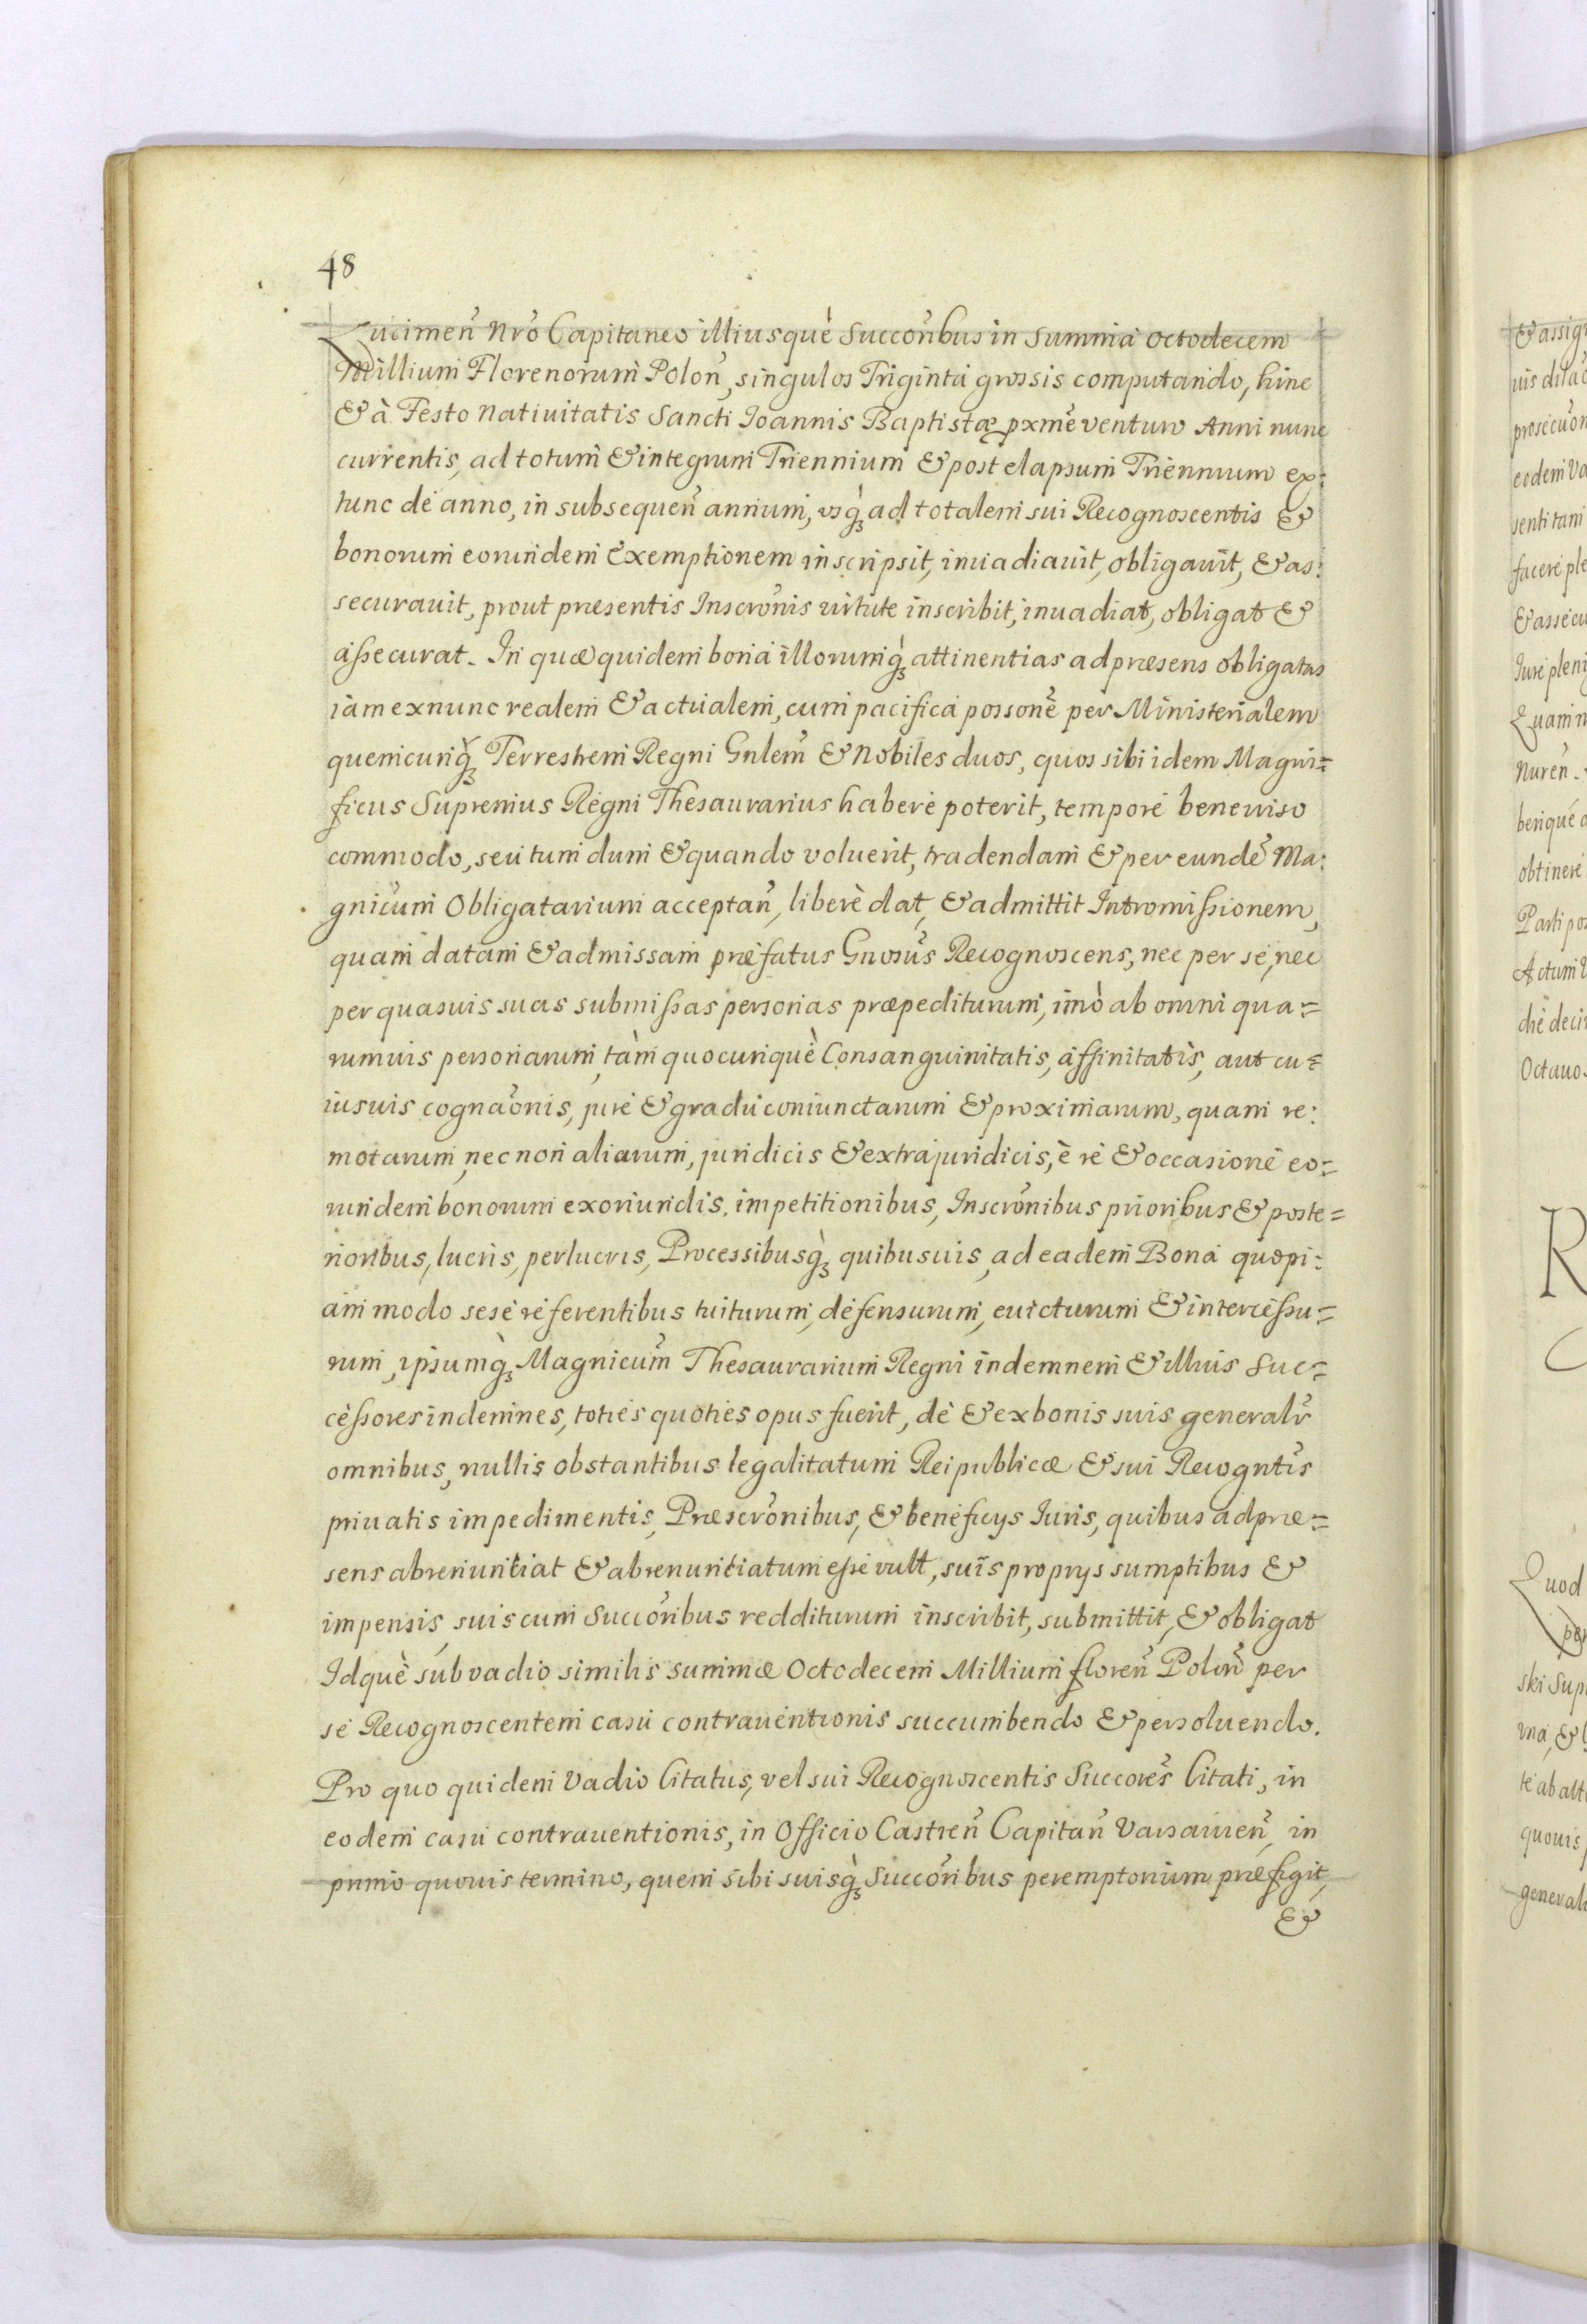 48
Lucimeñ Nrõ Capitaneo illiusquè Succoribus in Summa octodecem
Millium Florenorum Poloñ, singulos Triginta grossis computando, hinc
& à Festo Natiuitatis Sancti Ioannis Baptistæ pxmẽ venturo Anni nunc
currentis, ad totum & integrum Triennium & post elapsum Triennium ex:
tunc de anno, in subsequeñ annum, vsq̀ꝫ ad totalem sui Recognoscentis &
bonorum eorundem exemptionem inscripsit, inuadiauit, obligauit, & as:
securauit, prout præsentis Inscrõnis uirtute inscribit, inuadiat, obligat &
aßecurat. In quæ quidem bona illorumq̀ꝫ attinentias ad præsens obligatas
iam ex nunc realem & actualem, cum pacifica possonẽ per Ministerialem
quemcunq̀ꝫ Terrestrem Regni Gnlem̃ & Nobiles duos, quos sibi idem Magni=
ficus Supremus Regni Thesaurarius habere poterit, tempore beneuiso
commodo, seu tum dum & quando voluerit, tradendam & per eundẽ Ma:
gnicũm Obligatarium acceptañ, liberè dat, & admittit Intromißionem,
quam datam & admissam præfatus Gnosus̃ Recognoscens, nec per se, nec
per quasuis suas submißas personas præpediturum, imò ab omni qua=
rumuis personarum, tàm quocunquè Consanguinitatis, affinitatis, aut cu=
iusuis cognãonis, jure & gradu coniunctarum & proximarum, quam re:
motarum, nec non aliarum, juridicis & extrajuridicis, è re & occasione eo=
rundem bonorum exoriundis, impetitionibus, Inscrõnibus prioribus & poste=
rioribus, lucris, perlucris, Processibusq̀ꝫ quibusuis, ad eadem Bona quopi:
am modo sese referentibus tuiturum, defensurum, euicturum & interceßu=
rum, ipsumq̀ꝫ Magnicum̃ Thesaurarium Regni indemnem & illius Suc=
ceßores indemnes, toties quoties opus fuerit, de & ex bonis suis generalr̃
omnibus, nullis obstantibus legalitatum Reipublicæ & sui Recogntis̃
priuatis impedimentis, Præscrõnibus, & beneficys Iuris, quibus ad præ=
sens abrenuntiat & abrenuntiatum eße vult, suis proprys sumptibus &
impensis, suis cum Succoribus redditurum inscribit, submittit, & obligat
Idquè sub vadio similis summæ Octodecem Millium floreñ Poloñ per
se Recognoscentem casu contrauentionis succumbendo & persoluendo.
Pro quo quidem Vadio Citatus, vel sui Recognoscentis Succores̃ Citati, in
eodem casu contrauentionis, in Officio Castreñ Capitañ Varsauieñ, in
primo quouis termino, quem sibi suisq̀ꝫ Succoribus peremptorium præfigit,
&